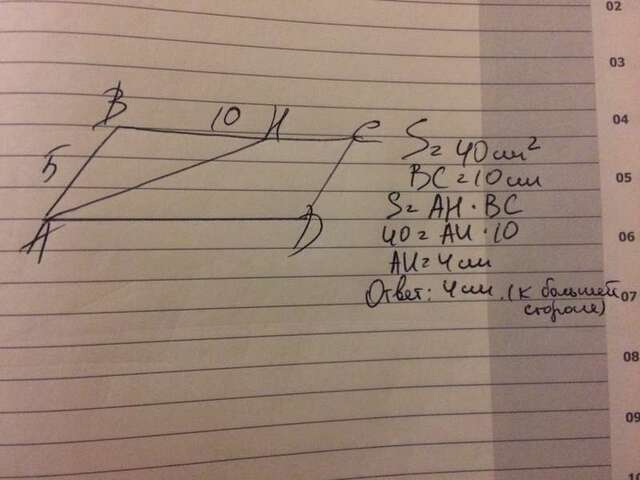 02
03
B 10 H C
04
5
S = 40 см²
BC = 10 см
05
S = AH · BC
A D
40 = AH · 10
06
AH = 4 см
Ответ: 4 см. (к большей
07
стороне)
08
09
10